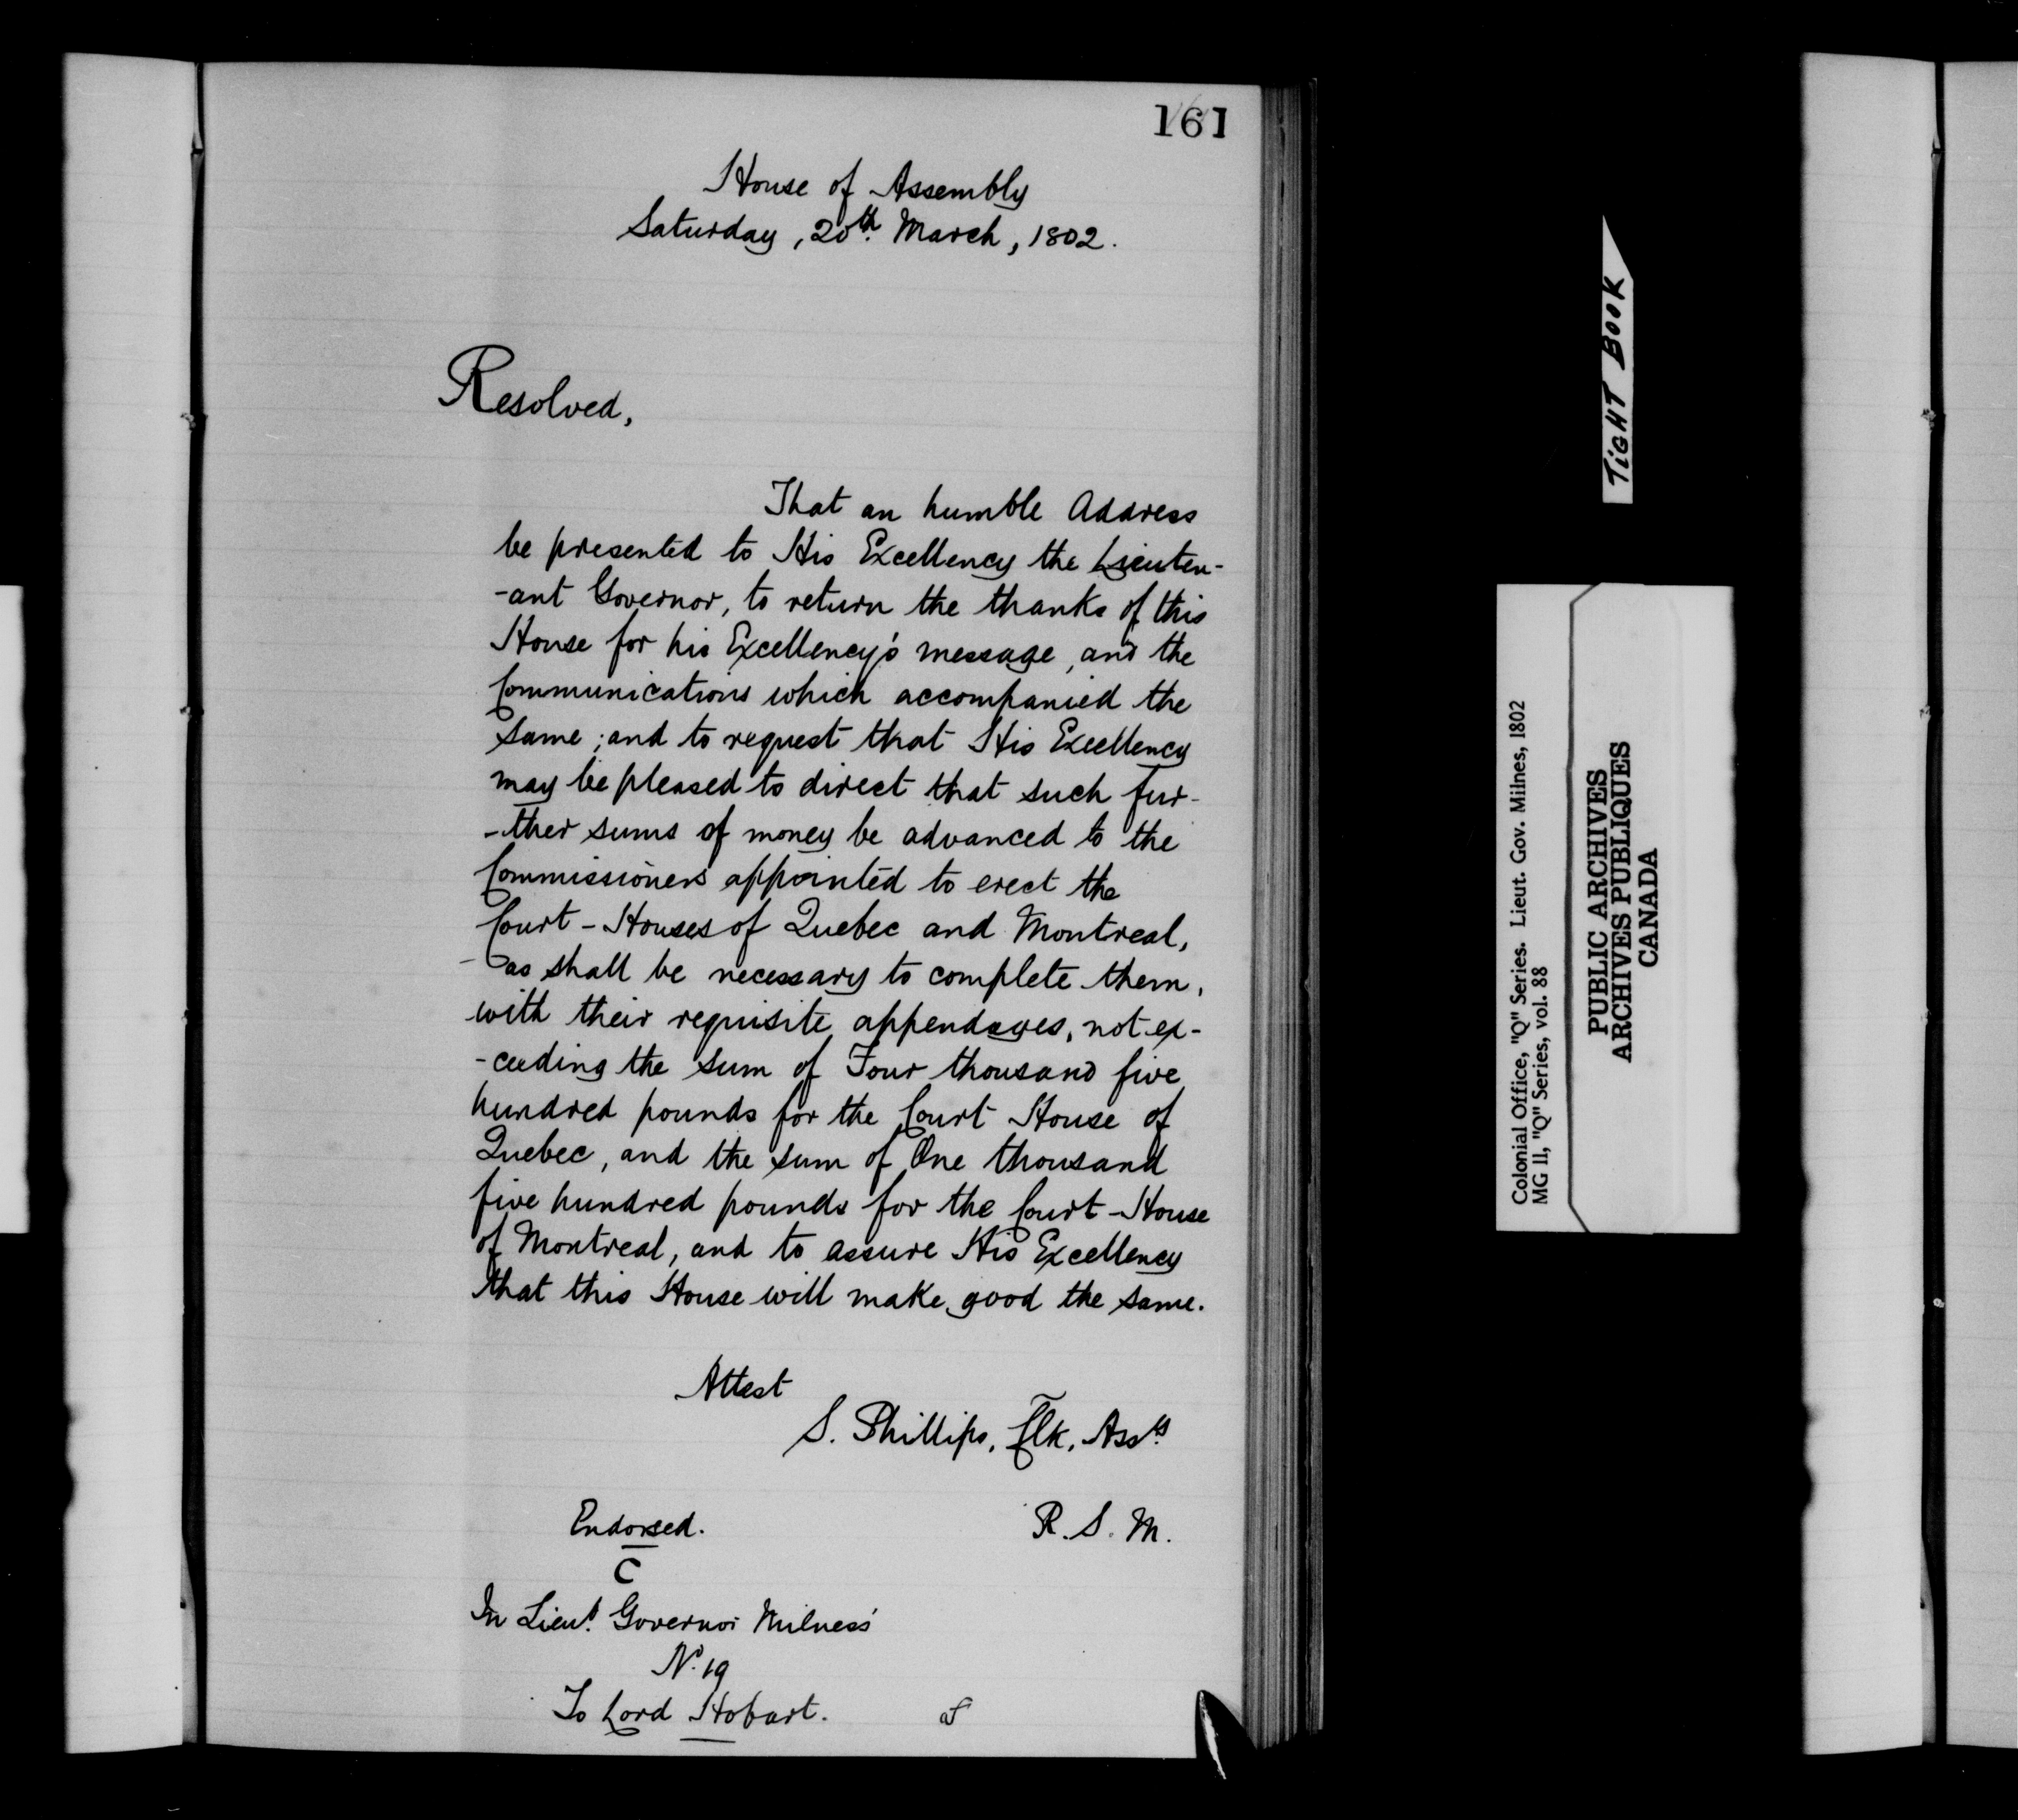 161
House of Assembly
Saturday, 20th. March, 1802.
Resolved,
That an humble Address
be presented to His Excellency the Lieuten-
-ant Governor, to return the thanks of this
House for his Excellency's message, and the
Communications which accompanied the
same; and to request that His Excellency
may be pleased to direct that such fur-
-ther sums of money be advanced to the
Commissioners appointed to erect the
Court-Houses of Quebec and Montreal,
as shall be necessary to complete them,
with their requisite appendages, not ex-
-ceeding the sum of Four thousand five
hundred pounds for the Court House of
Quebec, and the sum of One thousand
five hundred pounds for the Court-House
of Montreal, and to assure His Excellency
that this House will make good the same.
Attest
S. Phillips, Clk, Assy.
Endorsed.
R. S. M.
C
In Lieut. Governor Milnes's
No. 19
To Lord Hobart.
TIGHT BOOK
Colonial Office, "Q" Series. Lieut. Gov. Milnes, 1802
MG 11, "Q" Series, vol. 88
PUBLIC ARCHIVES
ARCHIVES PUBLIQUES
CANADA